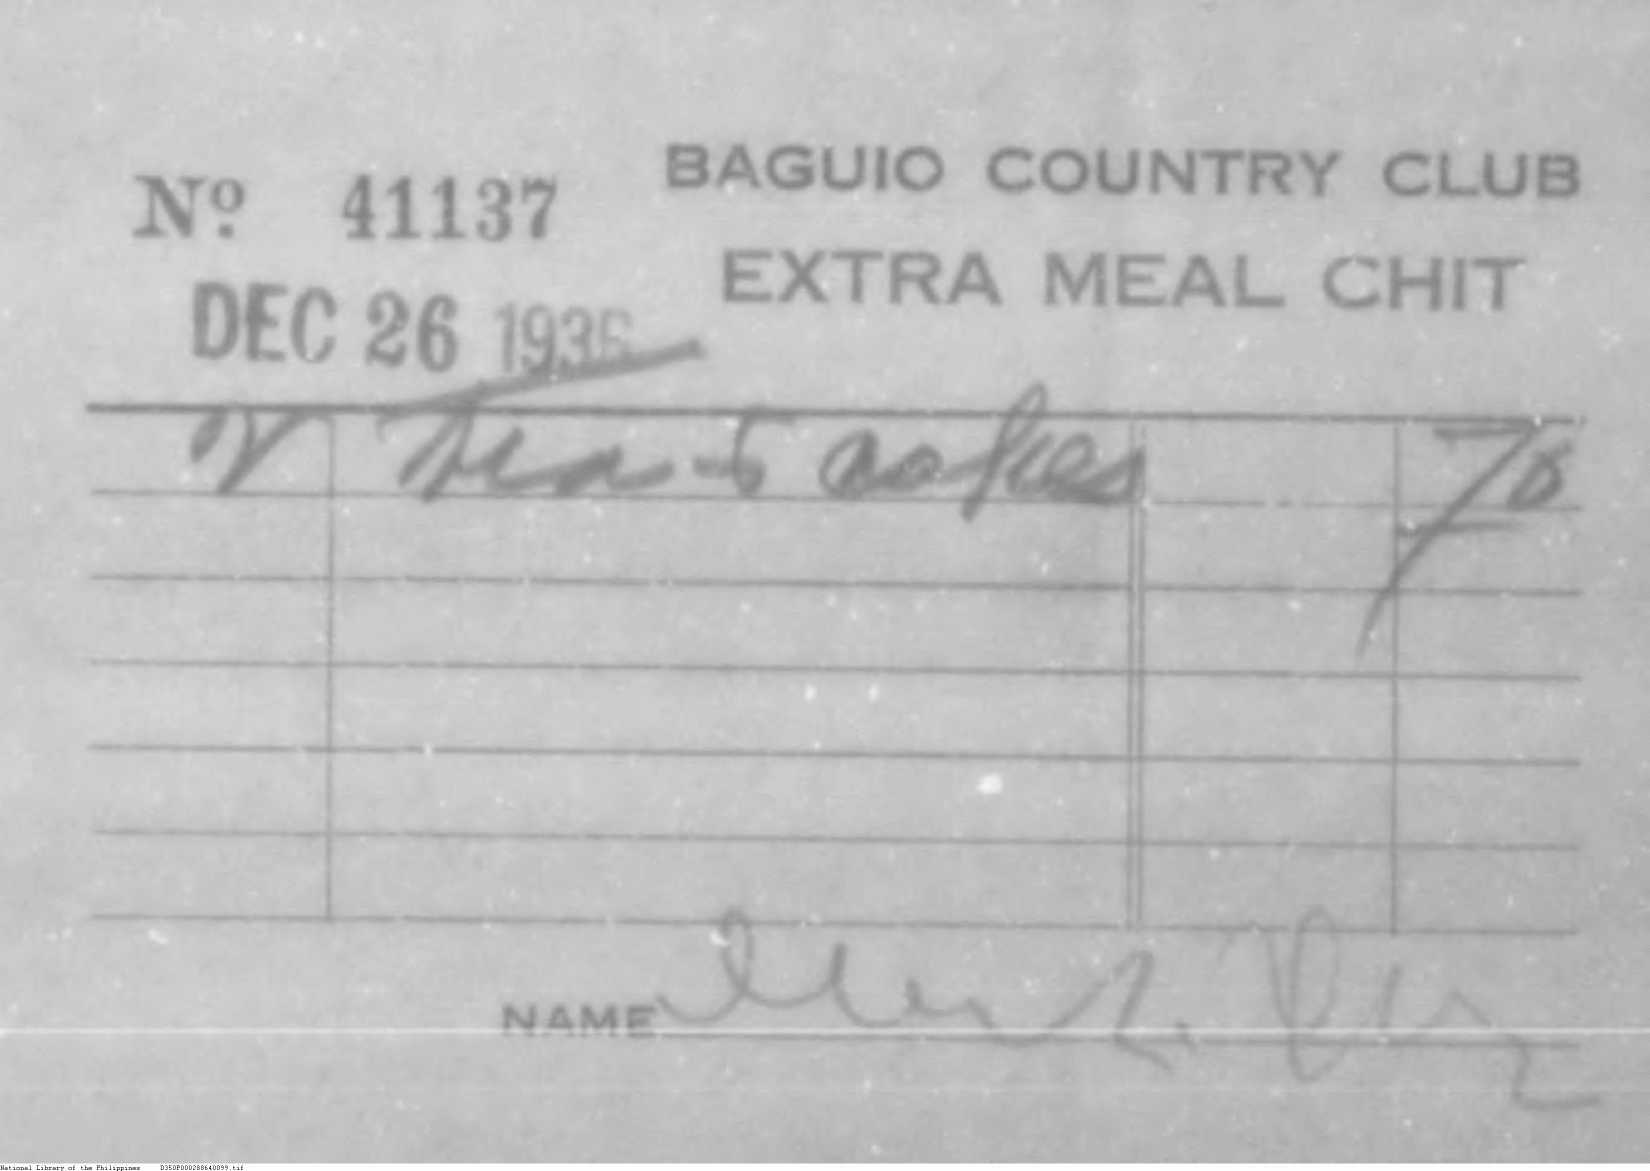 Nº 41137
BAGUIO COUNTRY CLUB
EXTRA MEAL CHIT
DEC 26 1936
Tea - Cakes 70
NAME
National Library of the Philippines D350P000288640099.tif